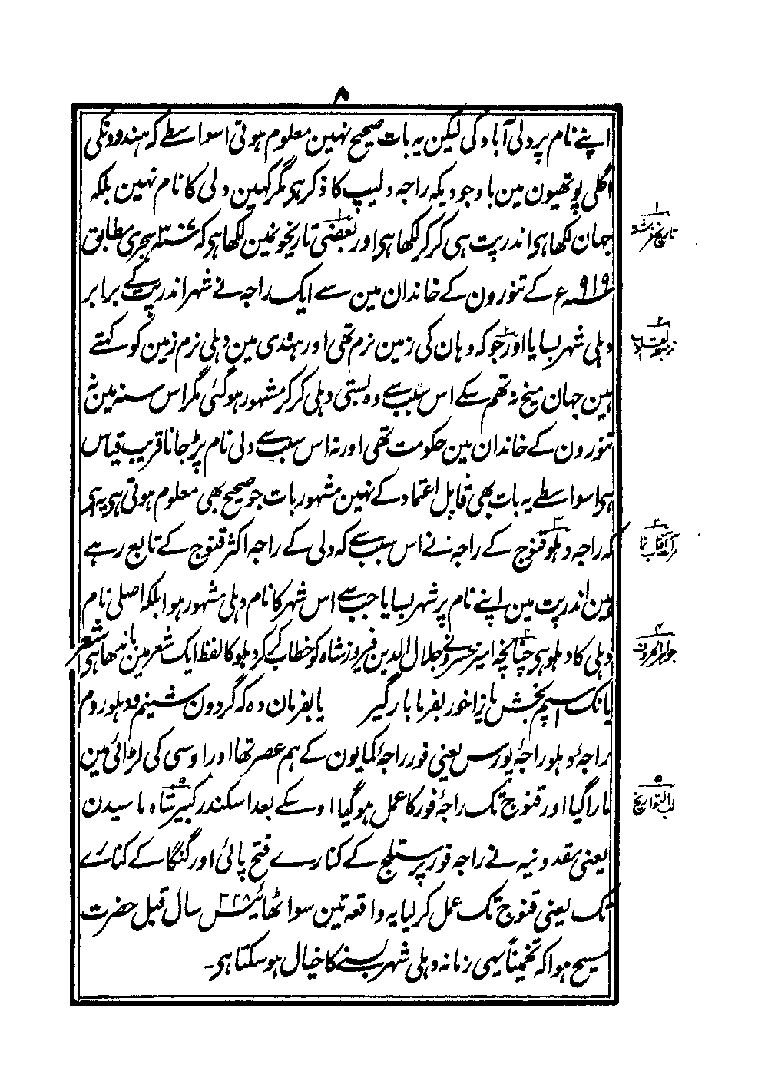 ۵
اپنے نام پر دلی آباد کی لیکن یہ بات صحیح نہین معلوم ہوتی اسواسطے کہ ہندوونکی
اگلی پوتھیون مین باوجودیکہ راجہ دلیپ کا ذکر ہی مگر کہین دلی کا نام نہین بلکہ
جہان لکھا ہی اندرپت ہی کرکر لکھا ہی اور بعضی تاریخونمین لکھا ہی کہ ہجری مطابق
۹۱۹ء کے تنورون کے خاندان مین سے ایک راجہ نے شہر اندرپت کے برابر
دہلی شہر بسایا اور جوکہ وہان کی زمین نرم تھی اور ہندی مین دہلی نرم زمین کو کہتے
ہین جہان میخ نہ تھم سکے اس سبب سے وہ بستی دہلی کرکر مشہور ہوگئی مگر اس سنہ مین نہ
تنورون کے خاندان مین حکومت تھی اور نہ اس سبب سے دلی نام پڑ جانا قریب قیاس
ہی اسواسطے یہ بات بھی قابل اعتماد کے نہین مشہور بات جو صحیح بھی معلوم ہوتی ہی یہ ہی
کہ راجہ دہلو قنوج کے راجہ نے اس سبب سے کہ دلی کے راجہ اکثر قنوج کے تابع رہے
ہین اندرپت مین اپنے نام پر شہر بسایا جب سے اس شہر کا نام دہلی مشہور ہوا بلکہ اصلی نام
دہلی کا دہلو ہی چنانچہ امیر خسرو نے جلال الدین فیروز شاہ کو خطاب کرکے دہلو کا لفظ ایک شعر مین باندھا ہی شعر
یا یک اسپم بخش یا ز آخور بفرما بارگیر یا بفرمان دہ کہ گردون شینم و دہلو روم
راجہ دہلو راجہ پورس یعنی فور راجہ کمایون کے ہم عصر تھا اور اوسی کی لڑائی مین
مارا گیا اور قنوج تک راجہ فور کا عمل ہوگیا اوسکے بعد اسکندر کبیر شاہ ماسیدن
یعنی مقدونیہ نے راجہ فور پر ستلج کے کنارے فتح پائی اور گنگا کے کنارے
تک یعنی قنوج تک عمل کر لیا یہ واقعہ تین سو اٹھائیس ۳۲۸ سال قبل حضرت
مسیح ہوا کہ تخمیناً اسی زمانہ دہلی شہر بسنے کا خیال ہوسکتا ہی۔
۱
تاریخ فرشتہ
۲
۳
۴
جواہر الحروف
۵
لب التواریخ